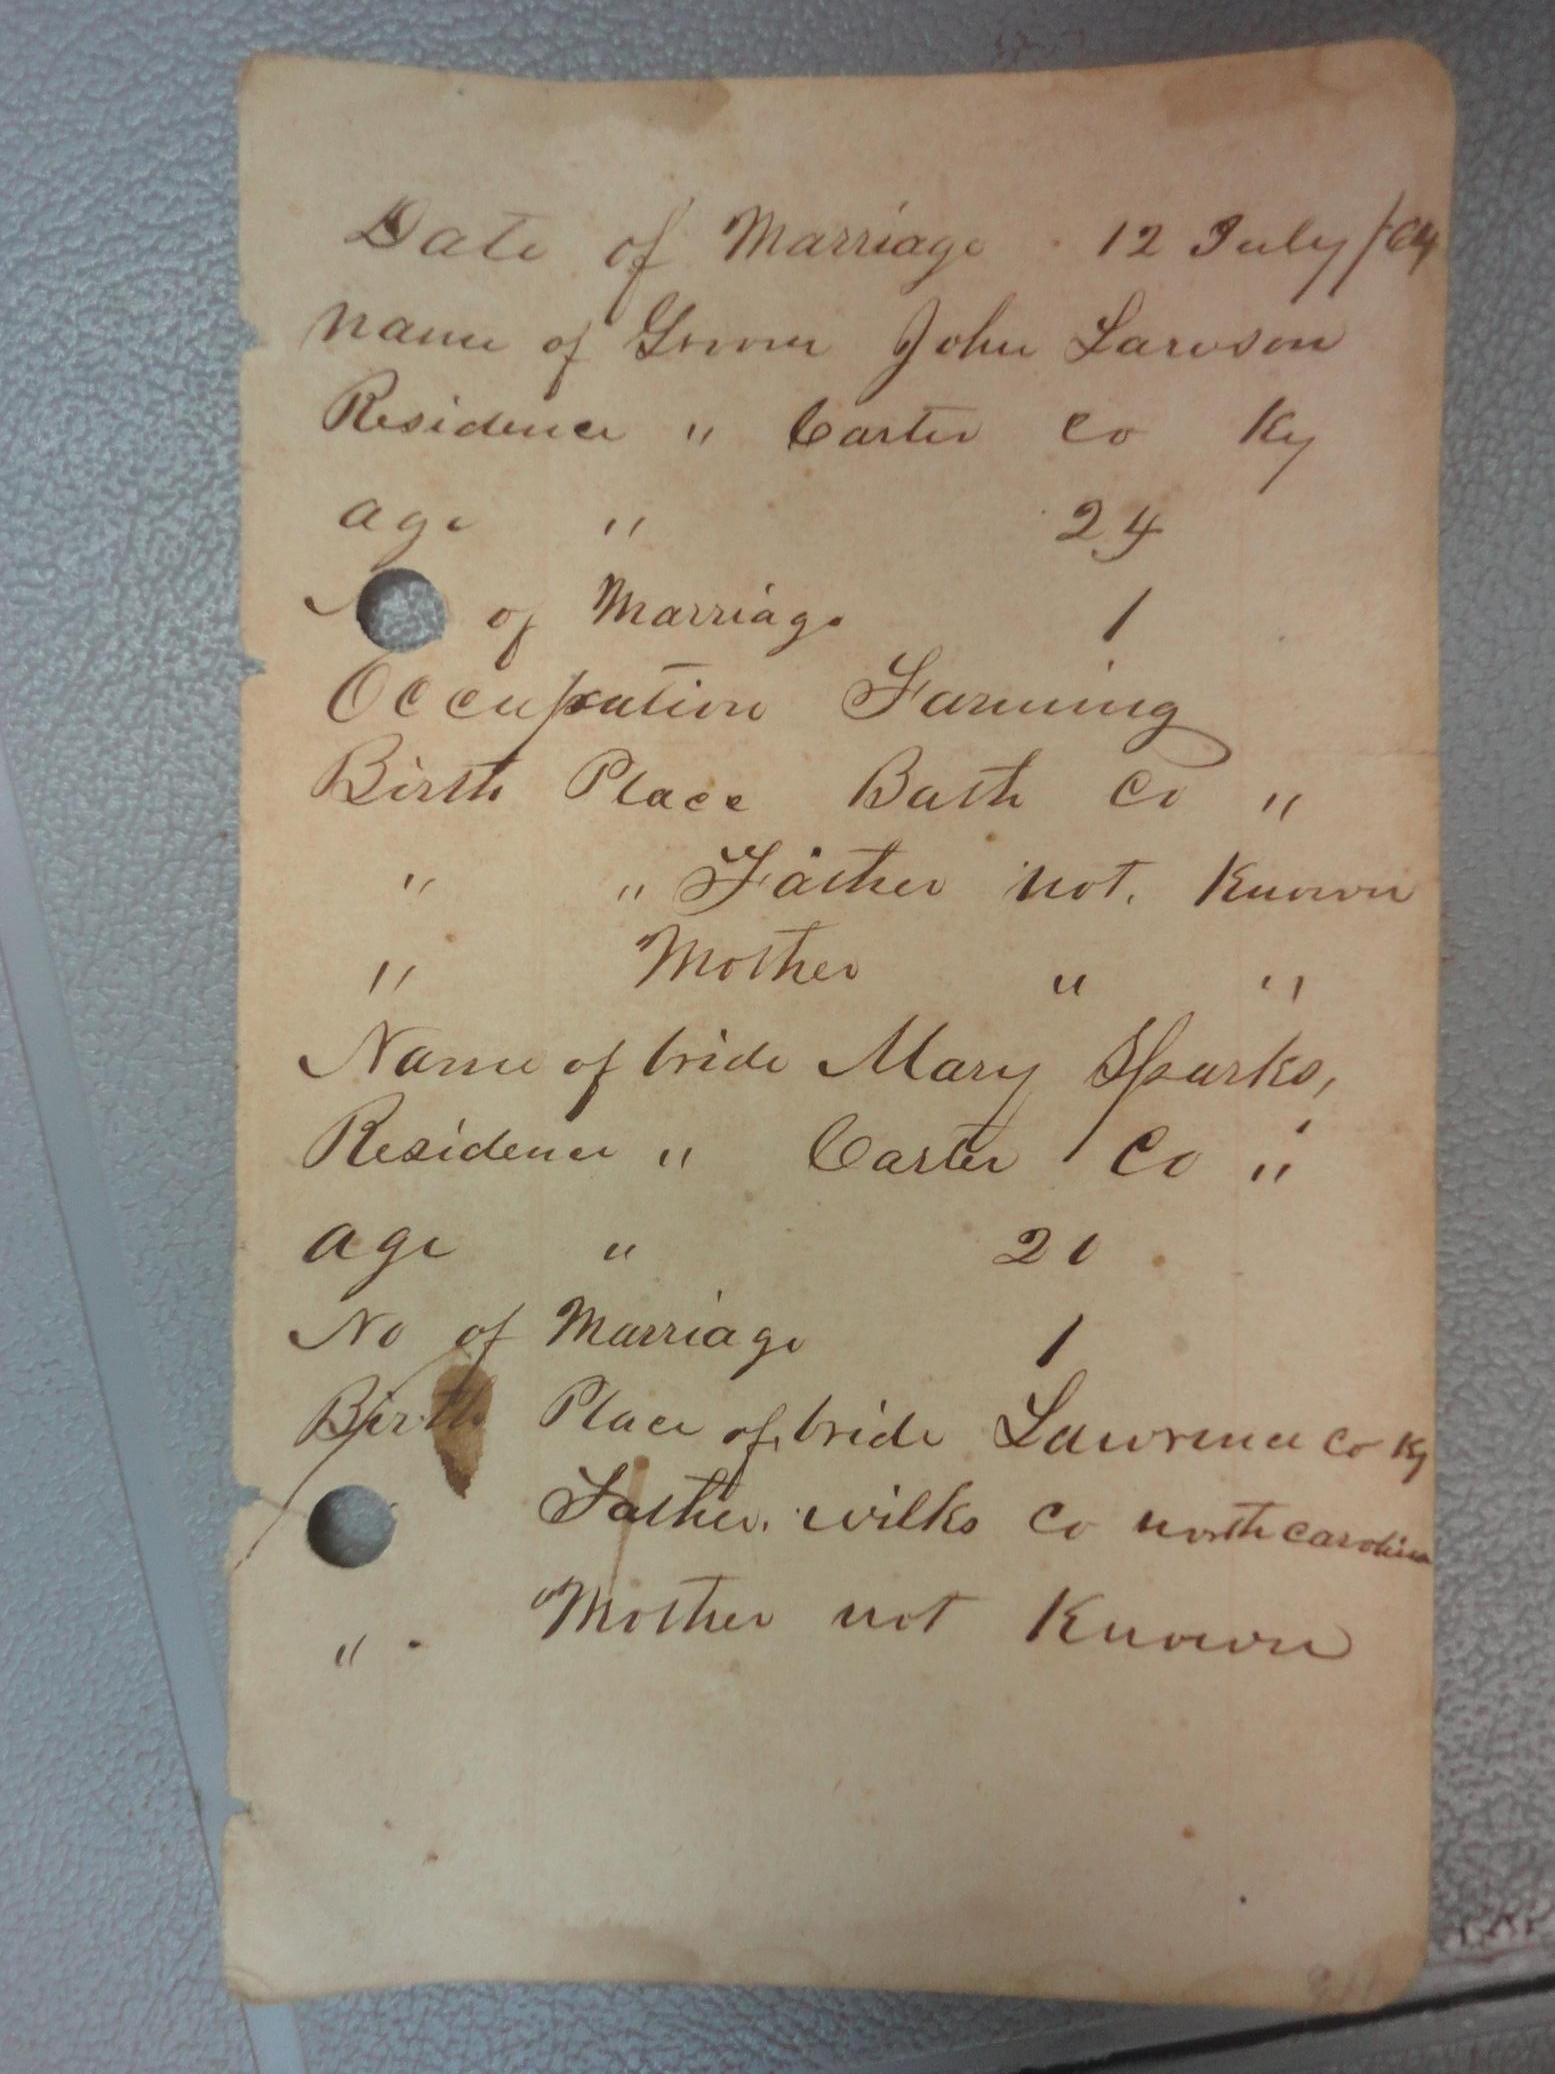 Date of Marriage 12 July / 64
Name of Groom John Lawson
Residence " Carter Co Ky
age " 24
of Marriage 1
Occupation Farming
Birth Place Bath Co "
" " Father not Known
" Mother " "
Name of bride Mary Sparks,
Residence " Carter Co "
age " 20
No of Marriage 1
Birth Place of bride Lawrence Co Ky
Father. wilks Co north carolina
" " Mother not Known